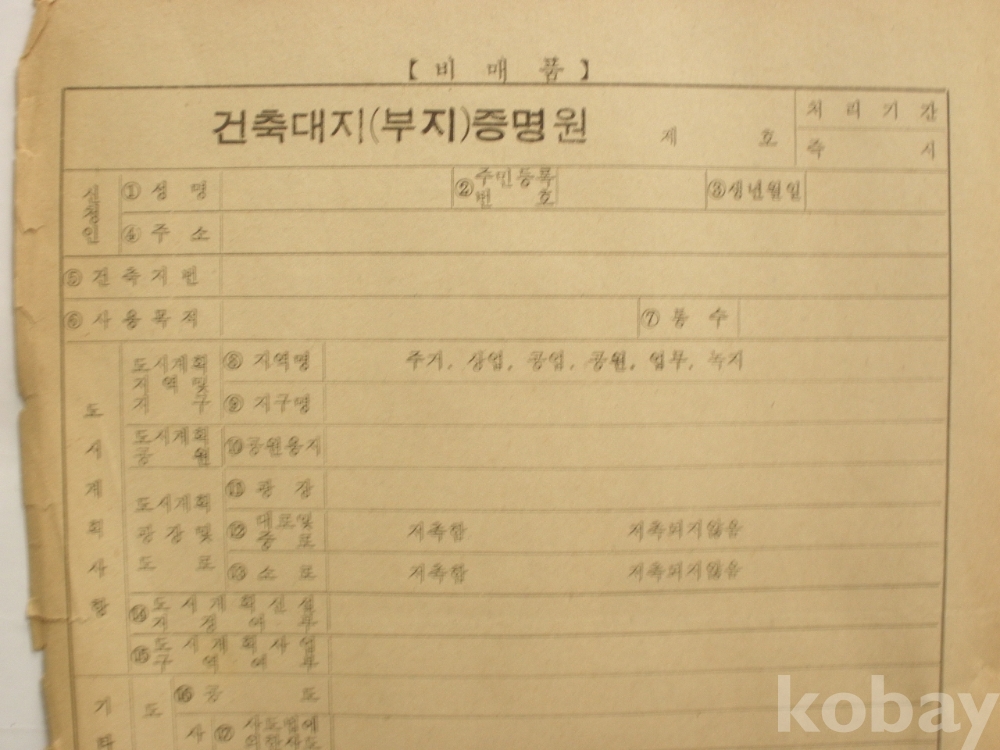 【 비 매 품 】
건축대지(부지)증명원 제 호 처 리 기 간
즉 시
신청인 ① 성 명 ② 주민등록번호 ③ 생년월일
④ 주 소
⑤ 건 축 지 번
⑥ 사 용 목 적 ⑦ 통 수
도시계획사항
도시계획 지역 및 지 구 ⑧ 지역명 주거, 상업, 공업, 공원, 업무, 녹지
⑨ 지구명
도시계획 공 원 ⑩ 공원용지
도시계획 광장 및 도 로 ⑪ 광 장
⑫ 대로및 중 로 저촉함 저촉되지않음
⑬ 소 로 저촉함 저촉되지않음
⑭ 도 시 계 획 시 설 지 정 여 부
⑮ 도 시 계 획 사 업 구 역 여 부
기타 도 ⑯ 공 도
사 ⑰ 사도법에 의한사도
kobay